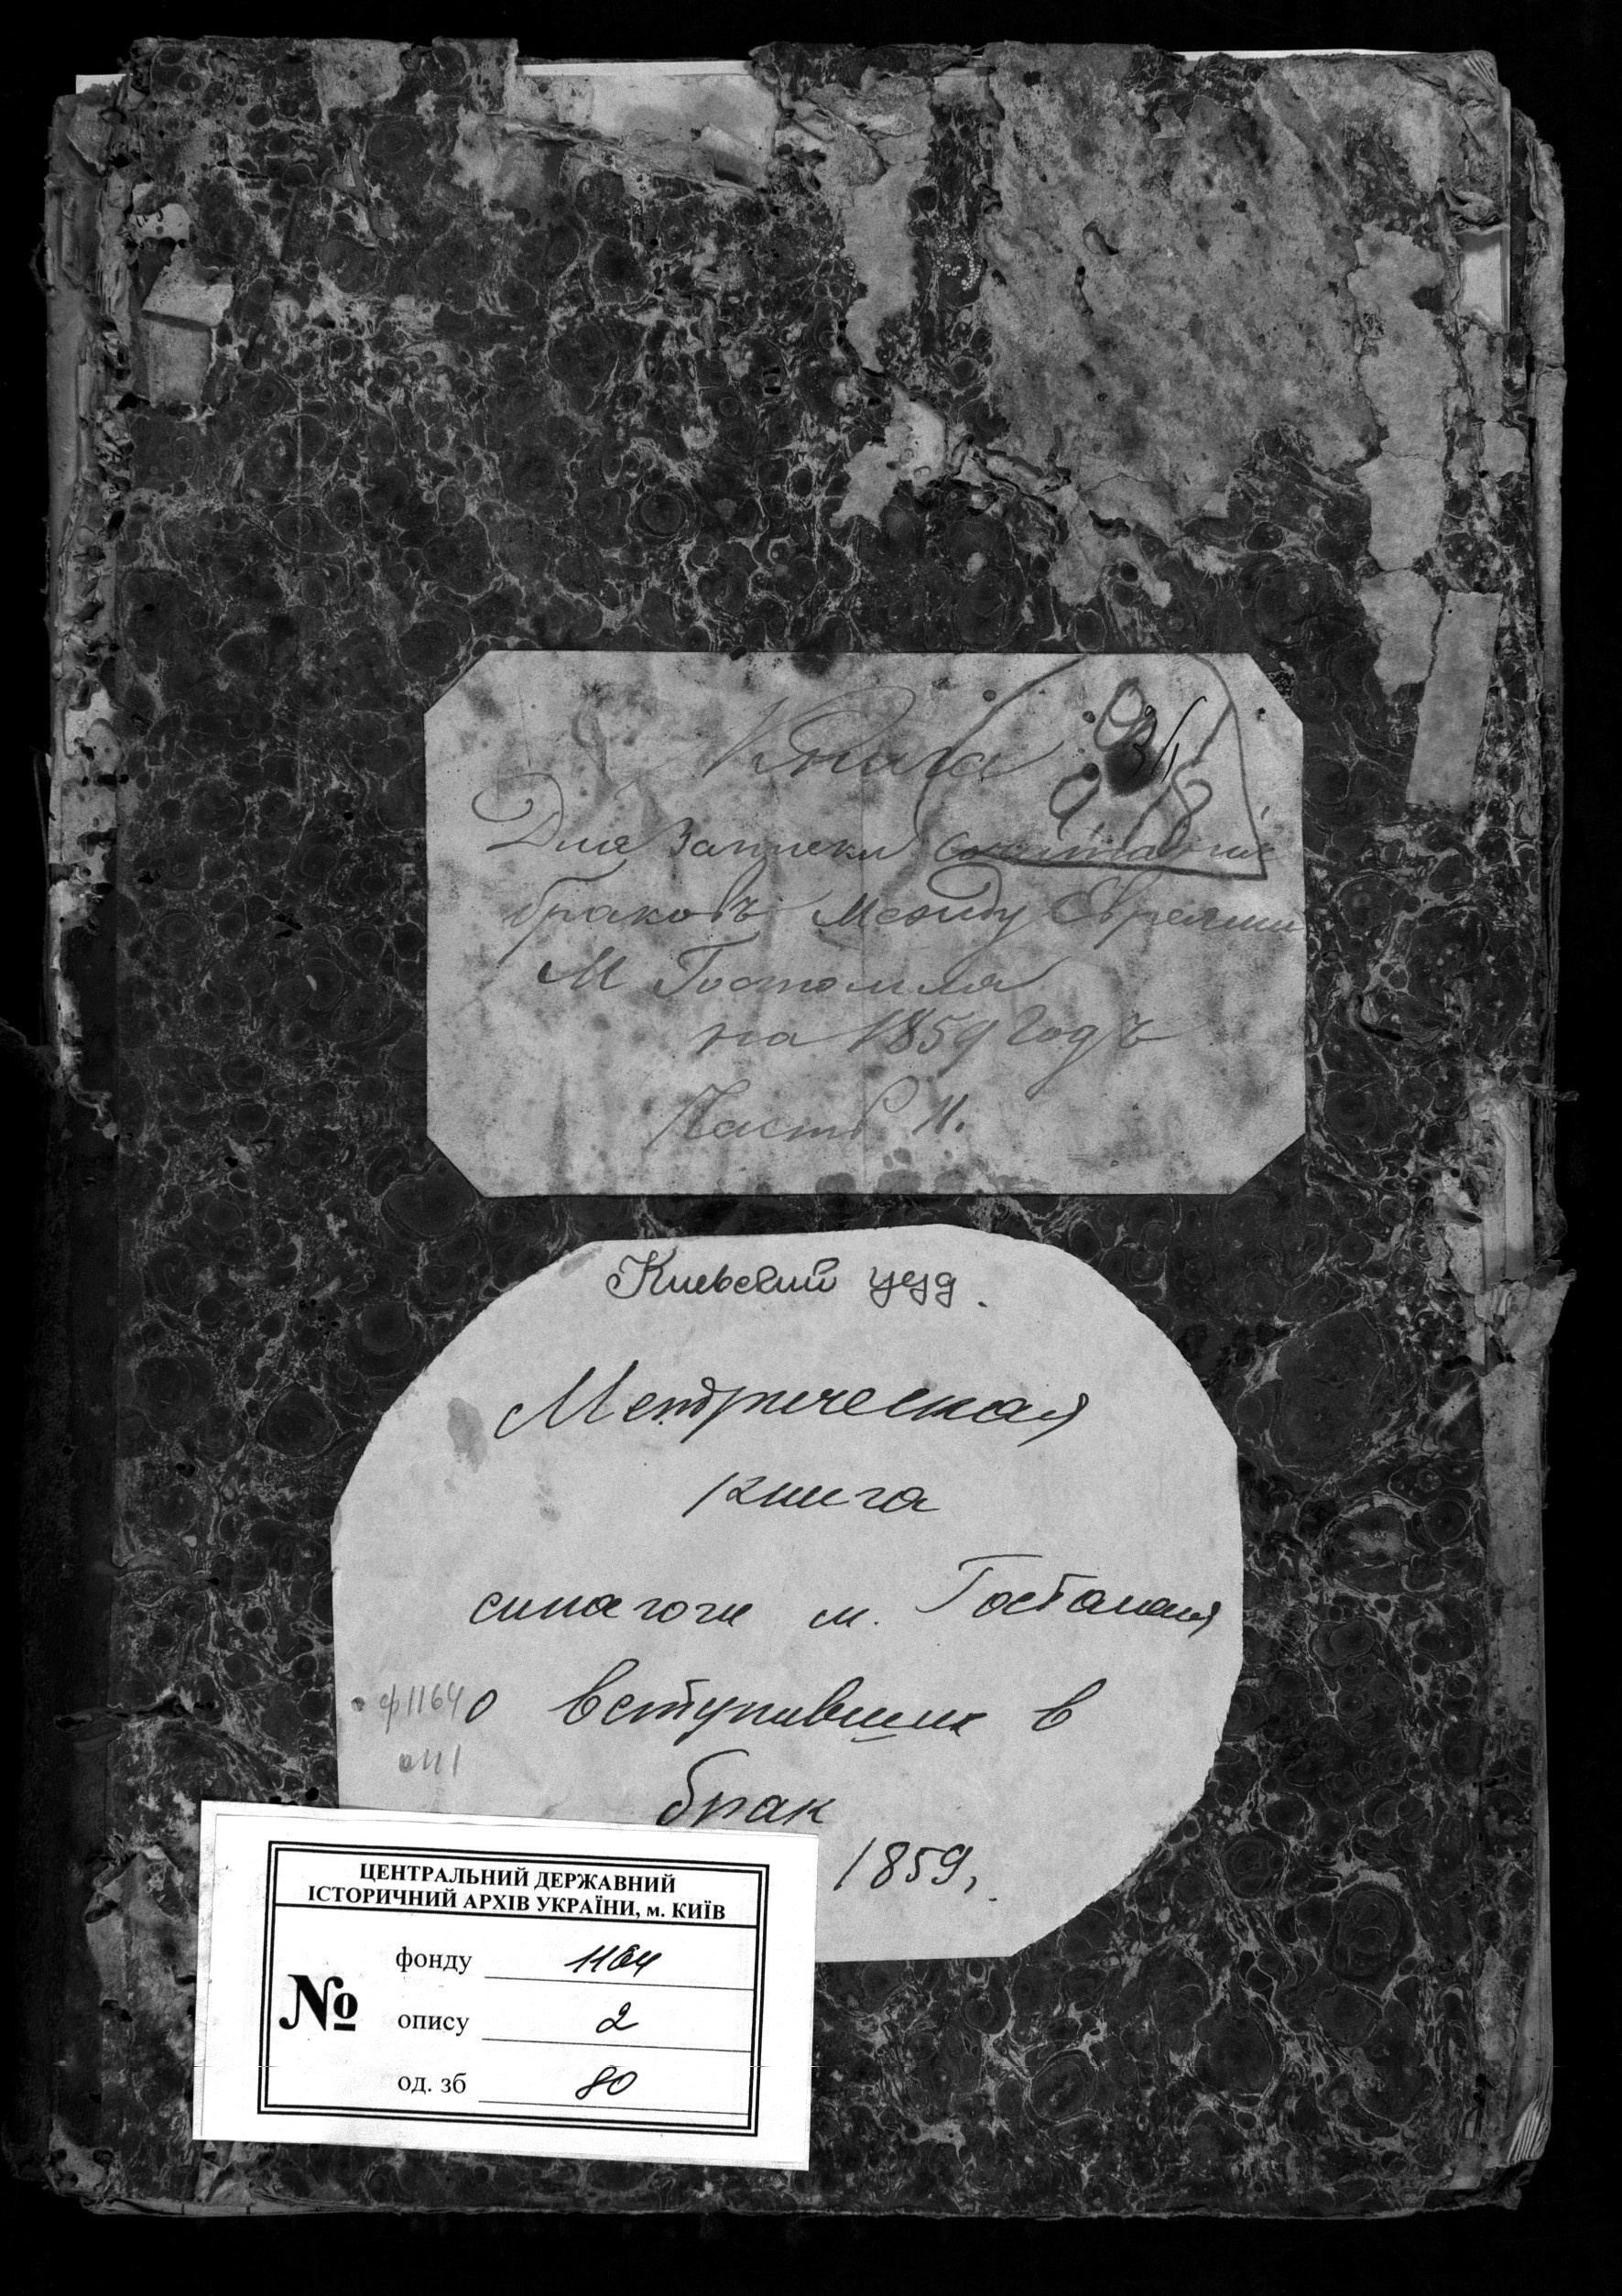 Книга
Для записки сочитания
браковъ между Евреями
М Гостомля
на 1859 Годъ
Часть II.
Киевский уезд.
Метрическая
книга
синагоги м. Гостомля
ф 1164 о вступивших в
оп 1
брак
1859,
ЦЕНТРАЛЬНИЙ ДЕРЖАВНИЙ
ІСТОРИЧНИЙ АРХІВ УКРАЇНИ, м. КИЇВ
№
фонду 1164
опису 2
од. зб 80